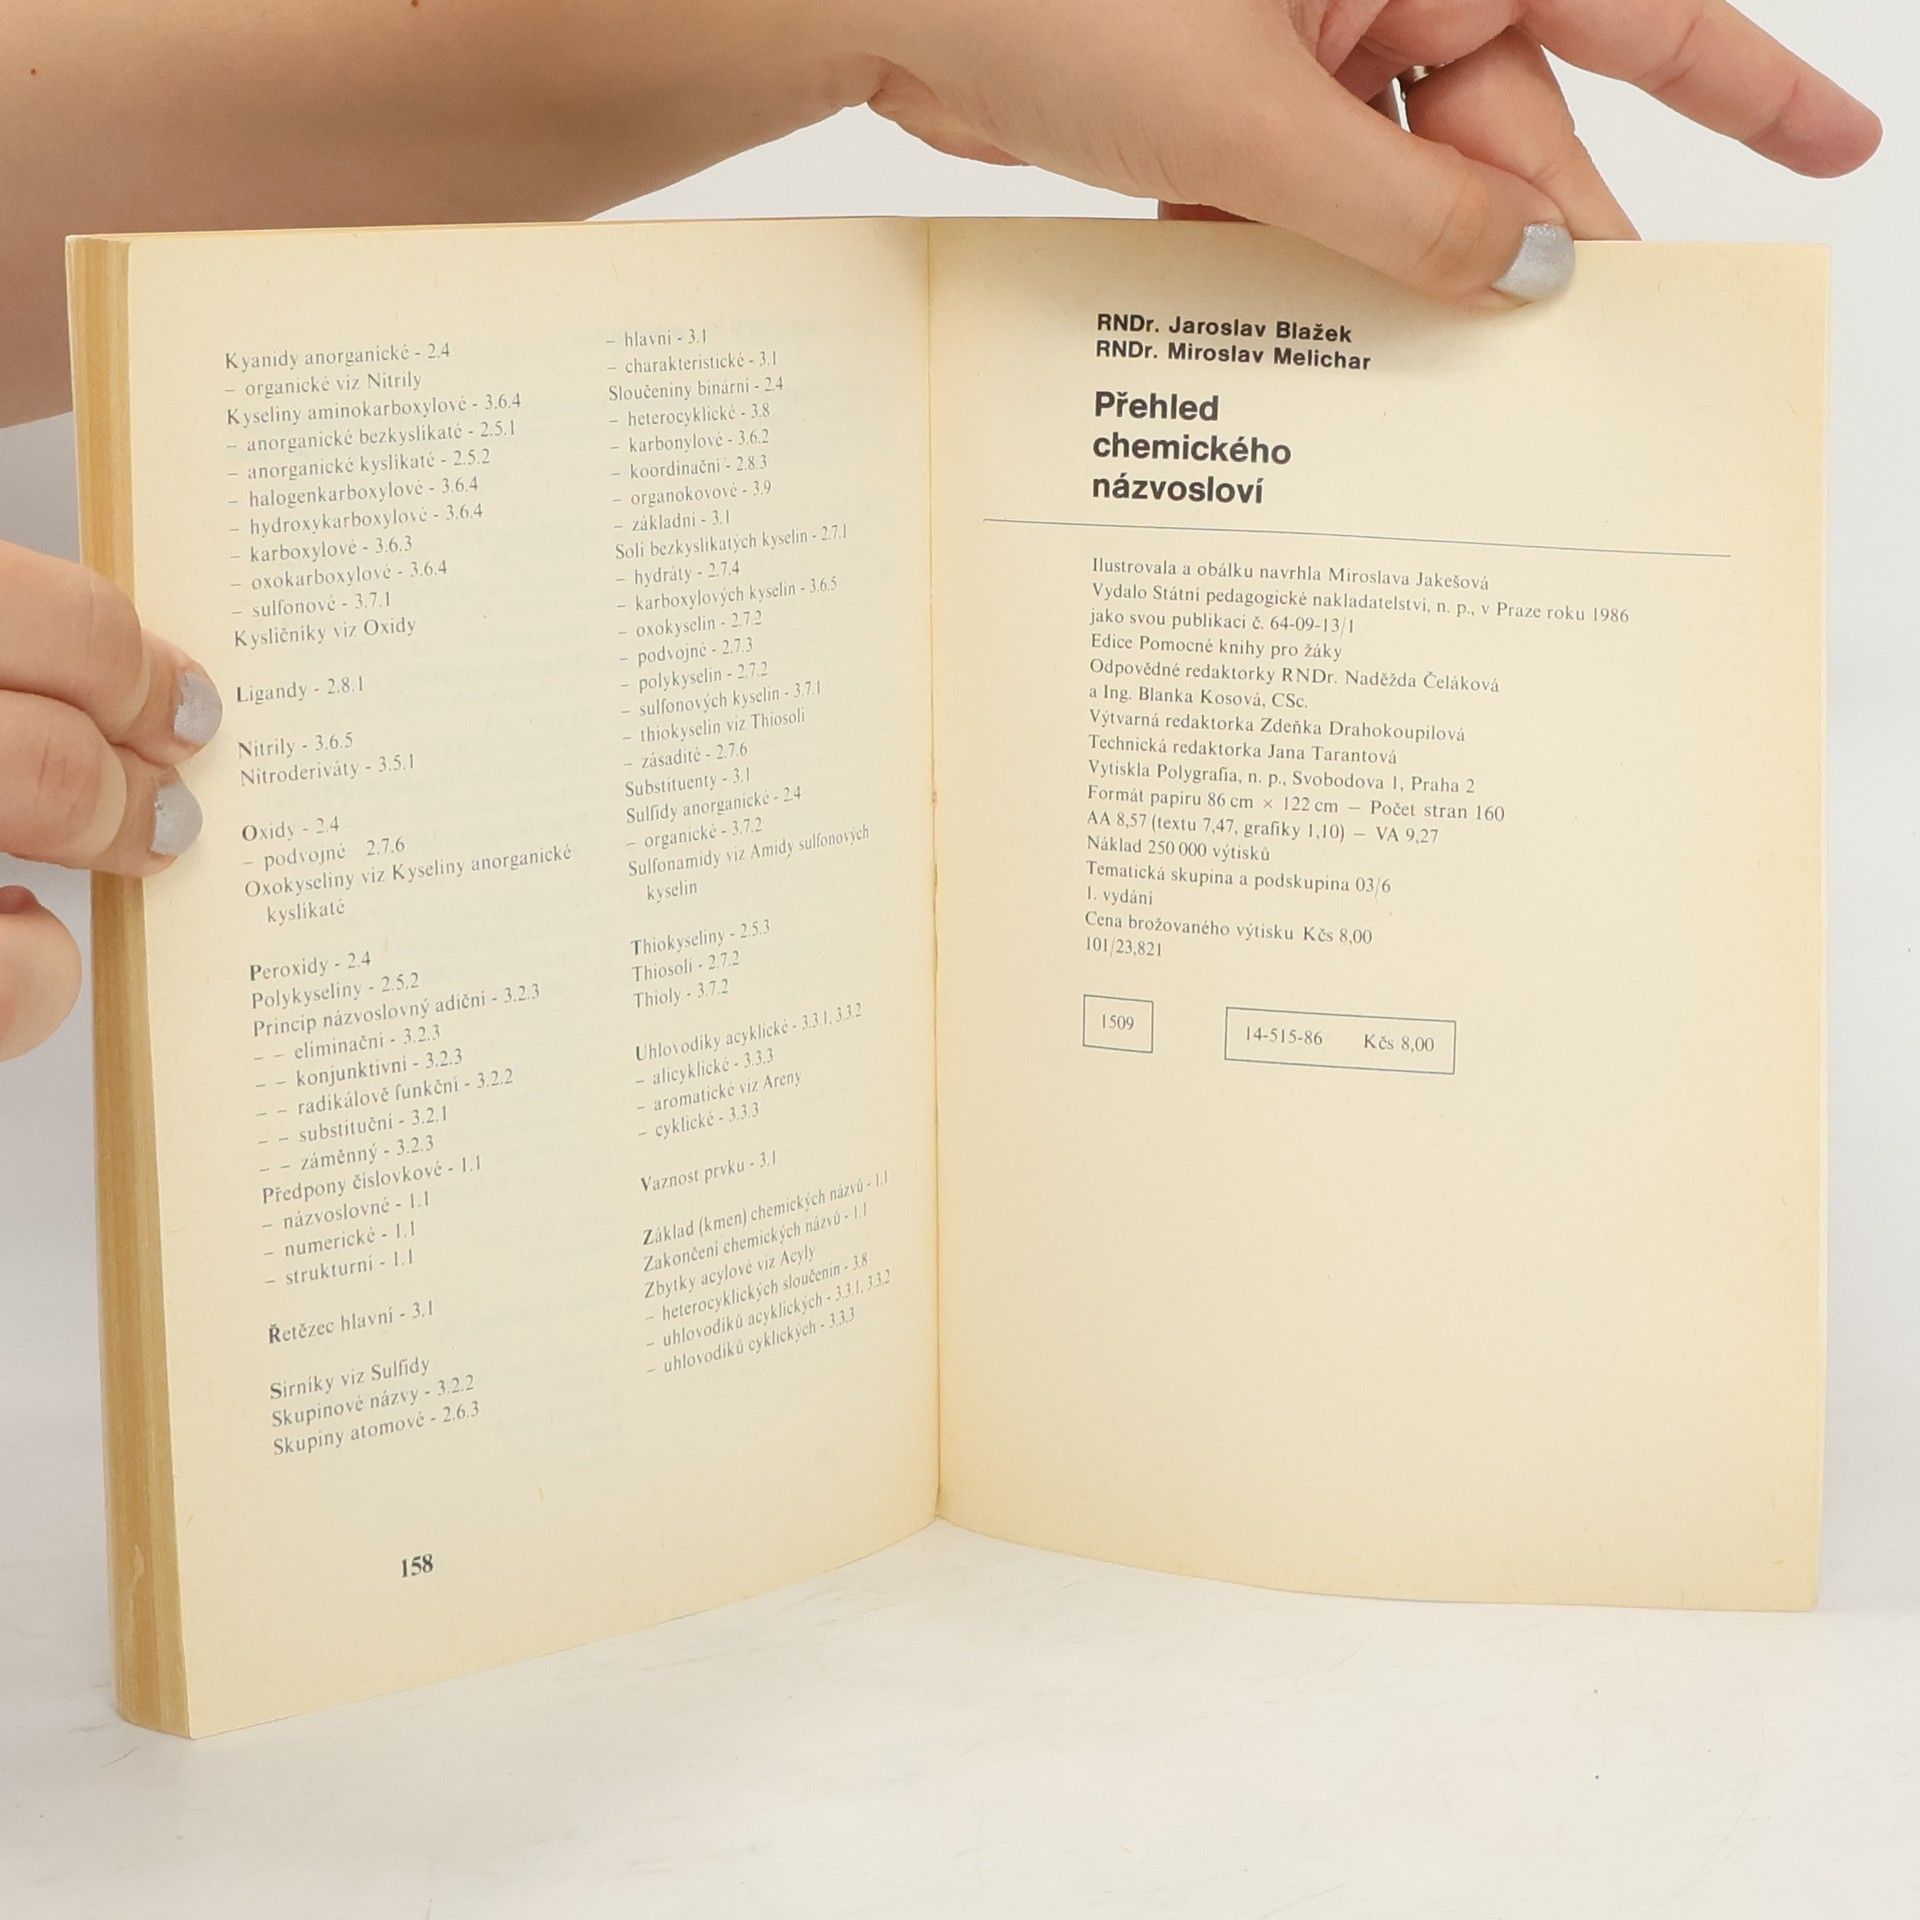 Kyanidy anorganické - 2.4
– organické viz Nitrily
Kyseliny aminokarboxylové - 3.6.4
– anorganické bezkyslíkaté - 2.5.1
– anorganické kyslíkaté - 2.5.2
– halogenkarboxylové - 3.6.4
– hydroxykarboxylové - 3.6.4
– karboxylové - 3.6.3
– oxokarboxylové - 3.6.4
– sulfonové - 3.7.1
Kysličníky viz Oxidy
Ligandy - 2.8.1
Nitrily - 3.6.5
Nitroderiváty - 3.5.1
Oxidy - 2.4
– podvojné 2.7.6
Oxokyseliny viz Kyseliny anorganické
kyslíkaté
Peroxidy - 2.4
Polykyseliny - 2.5.2
Princip názvoslovný adiční - 3.2.3
– – eliminační - 3.2.3
– – konjunktivní - 3.2.3
– – radikálově funkční - 3.2.2
– – substituční - 3.2.1
– – záměnný - 3.2.3
Předpony číslovkové - 1.1
– názvoslovné - 1.1
– numerické - 1.1
– strukturní - 1.1
Řetězec hlavní - 3.1
Sirníky viz Sulfidy
Skupinové názvy - 3.2.2
Skupiny atomové - 2.6.3
– hlavní - 3.1
– charakteristické - 3.1
Sloučeniny binární - 2.4
– heterocyklické - 3.8
– karbonylové - 3.6.2
– koordinační - 2.8.3
– organokovové - 3.9
– základní - 3.1
Soli bezkyslíkatých kyselin - 2.7.1
– hydráty - 2.7.4
– karboxylových kyselin - 3.6.5
– oxokyselin - 2.7.2
– podvojné - 2.7.3
– polykyselin - 2.7.2
– sulfonových kyselin - 3.7.1
– thiokyselin viz Thiosoli
– zásadité - 2.7.6
Substituenty - 3.1
Sulfidy anorganické - 2.4
– organické - 3.7.2
Sulfonamidy viz Amidy sulfonových
kyselin
Thiokyseliny - 2.5.3
Thiosoli - 2.7.2
Thioly - 3.7.2
Uhlovodíky acyklické - 3.3.1, 3.3.2
– alicyklické - 3.3.3
– aromatické viz Areny
– cyklické - 3.3.3
Vaznost prvku - 3.1
Základ (kmen) chemických názvů - 1.1
Zakončení chemických názvů - 1.1
Zbytky acylové viz Acyly
– heterocyklických sloučenin - 3.8
– uhlovodíků acyklických - 3.3.1, 3.3.2
– uhlovodíků cyklických - 3.3.3
158
RNDr. Jaroslav Blažek
RNDr. Miroslav Melichar
Přehled
chemického
názvosloví
Ilustrovala a obálku navrhla Miroslava Jakešová
Vydalo Státní pedagogické nakladatelství, n. p., v Praze roku 1986
jako svou publikaci č. 64-09-13/1
Edice Pomocné knihy pro žáky
Odpovědné redaktorky RNDr. Naděžda Čeláková
a Ing. Blanka Kosová, CSc.
Výtvarná redaktorka Zdeňka Drahokoupilová
Technická redaktorka Jana Tarantová
Vytiskla Polygrafia, n. p., Svobodova 1, Praha 2
Formát papíru 86 cm × 122 cm – Počet stran 160
AA 8,57 (textu 7,47, grafiky 1,10) – VA 9,27
Náklad 250 000 výtisků
Tematická skupina a podskupina 03/6
1. vydání
Cena brožovaného výtisku Kčs 8,00
101/23,821
1509
14-515-86 Kčs 8,00